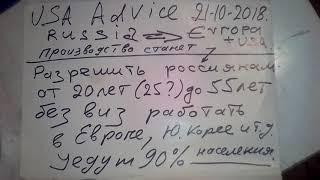 USA AdVice 21-10-2018.
Russia => Европа
+ USA
производство станет
Разрешить россиянам
от 20 лет (25?) до 55 лет
без виз работать
в Европе, Ю. Корее и т.д.
Уедут 90% населения.